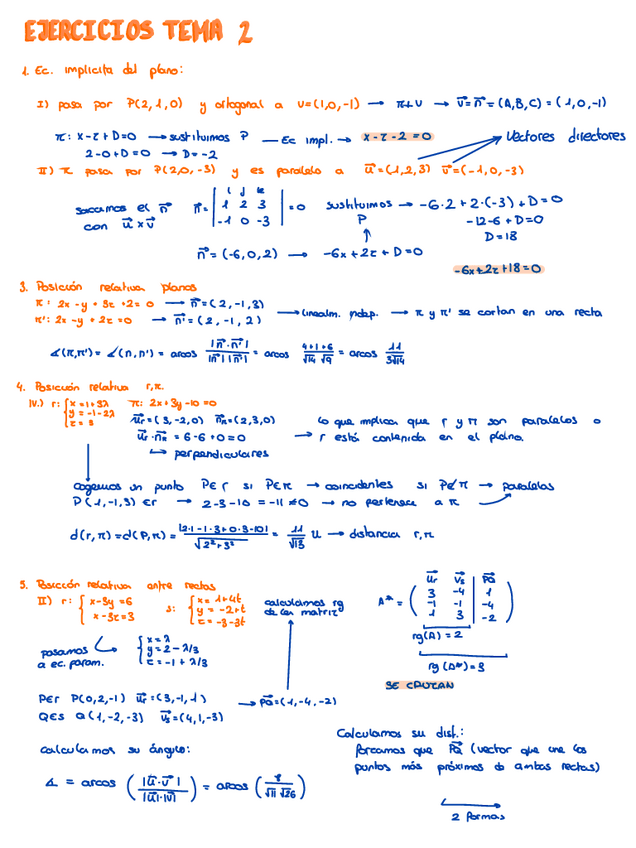 EJERCICIOS TEMA 2
1. Ec. implícita del plano:
I) pasa por P(2,1,0) y ortogonal a v=(1,0,-1) → π⊥v → v⃗=n⃗=(A,B,C)=(1,0,-1)
π: x-z+D=0 → sustituimos P — Ec impl. → x-z-2=0
2-0+D=0 → D=-2
Vectores directores
II) π pasa por P(2,0,-3) y es paralelo a u⃗=(1,2,3) v⃗=(-1,0,-3)
sacamos el n⃗ con u⃗xv⃗
n⃗= | i j k | 1 2 3 | -1 0 -3 | =0 sustituimos P → -6·2+2·(-3)+D=0
-12-6+D=0
D=18
n⃗=(-6,0,2) → -6x+2z+D=0
-6x+2z+18=0
3. Posición relativa planos
π: 2x-y+3z+2=0 → n⃗=(2,-1,3)
π': 2x-y+2z=0 → n⃗'=(2,-1,2)
→ linealm. indep. → π y π' se cortan en una recta
∡(π,π')=∡(n,n')= arcos |n⃗·n⃗'| / |n⃗||n⃗'| = arcos 4+1+6 / √14 √9 = arcos 11 / 3√14
4. Posición relativa r,π.
IV.) r: { x=1+3λ y=-1-2λ z=3 π: 2x+3y-10=0
u⃗r=(3,-2,0) n⃗π=(2,3,0)
u⃗r·n⃗π=6-6+0=0
↳ perpendiculares
lo que implica que r y π son paralelos o
→ r está contenida en el plano.
cogemos un punto P∈r si P∈π → coincidentes si P∉π → paralelos
P(1,-1,3)∈r → 2-3-10=-11≠0 → no pertenece a π
d(r,π)=d(P,π)= |2·1-1·3+0·3-10| / √2²+3² = 11 / √13 u → distancia r,π
5. Posición relativa entre rectas
II) r: { x-3y=6 x-3z=3 s: { x=1+4t y=-2+t z=-3-3t
calculamos rg de las matriz
A*= ( u⃗r v⃗s P⃗Q 3 -4 1 -1 -1 -4 1 3 -2 )
rg(A)=2
rg(A*)=3
SE CRUZAN
pasamos a ec. param.
{ x=λ y=2-λ/3 z=-1+λ/3
P∈r P(0,2,-1) u⃗r=(3,-1,1)
Q∈s Q(1,-2,-3) v⃗s=(4,1,-3)
→ P⃗Q=(1,-4,-2)
calculamos su ángulo:
∡ = arcos ( |u⃗·v⃗| / |u⃗|·|v⃗| ) = arcos ( 8 / √11 √26 )
Calculamos su dist.:
forzamos que P⃗Q (vector que une los
puntos más próximos de ambas rectas)
2 formas